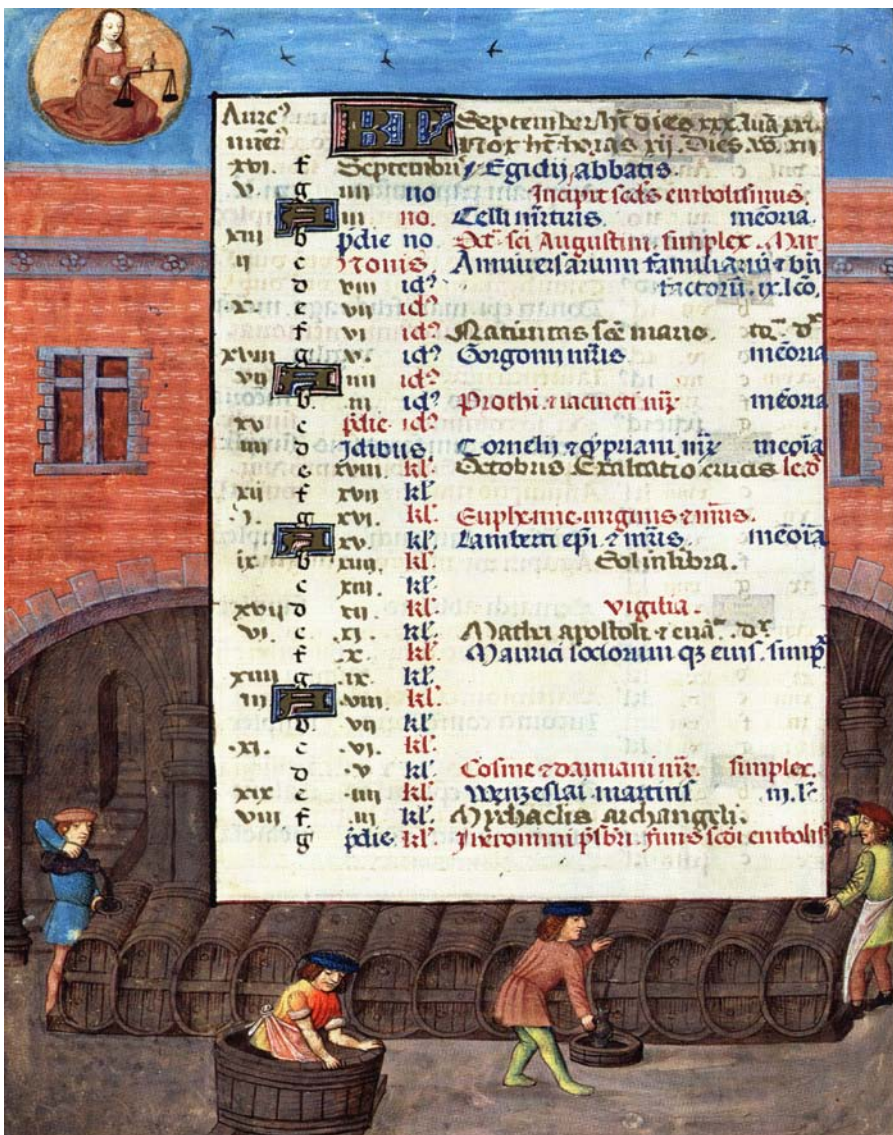 Aure⁹ KL September ht dies xxx. luā xxx.
nuer⁹ Nox ht horas xij. Dies vo xij
xvi. f Septembris Egidij abbatis
v. g iiii no Incipit sedes embolismus.
A iii no. Celli mrtiris. mēoria.
xiii b pdie no Oct. sci Augustini simplex. Mar
ij c Nonis, Anniversarium familiariū &
d viii id? factorū. ix. lcō.
x. e vii id?
f vi id? Natiuitas scē marie.
xviii g v. id? Gorgonii mris mēoria
vij A iiii id?
b iii id? Prothi & iacincti mēoria
xv c pdie id?
iiii d Idibus Cornelii & cypriani mēoīa
e xviii. kl'. Octobris Exaltatio crucis
xii f xvii kl'
.j. g xvi. kl'. Euphemie uirginis & mris.
A xv. kl'. Lamberti epi. & mris mēoīa
ix b xiiii. kl'. Sol in libra.
c xiii. kl'.
xvii d xii. kl'. vigilia.
vi. e xi. kl'. Mathei apostoli & euā.
f .x. kl'. Maurici sociorum qz eius. simp
xiiii g .ix. kl'.
iii A .viii. kl'.
b vii kl'
.xi. c .vi. kl'.
d .v kl'. Cosme & damiani simplex.
xix e .iiii kl'. Wenzeslai martiris
viii f .iii kl'. Mychaelis archangeli.
g pdie. kl'. Iheronimi psbri. finis